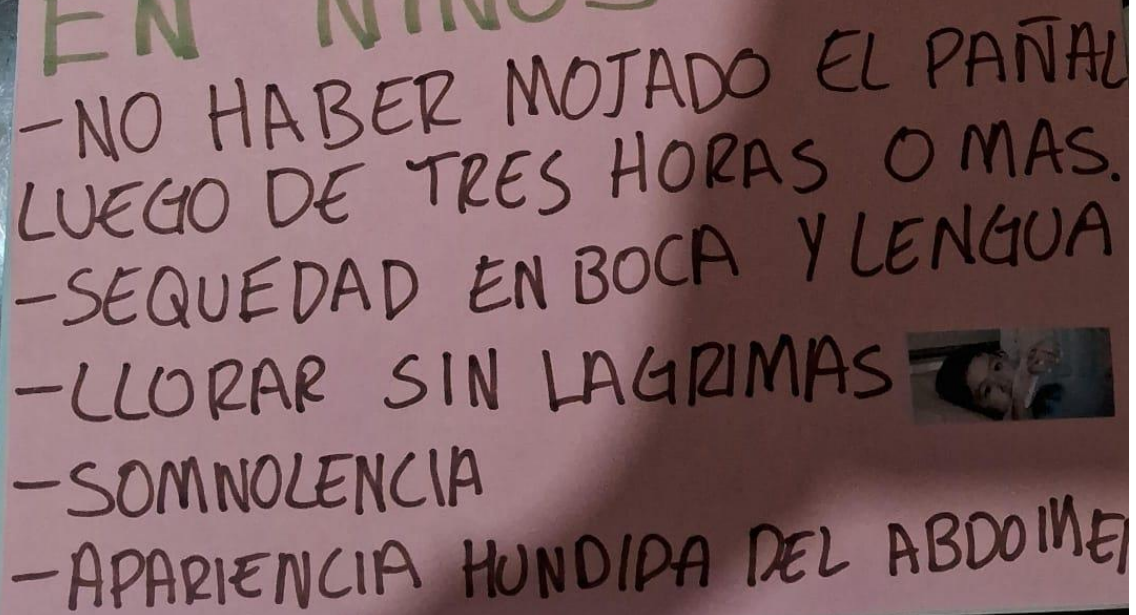 EN NIÑOS
-NO HABER MOJADO EL PAÑAL
LUEGO DE TRES HORAS O MAS.
-SEQUEDAD EN BOCA Y LENGUA
-LLORAR SIN LAGRIMAS
-SOMNOLENCIA
-APARIENCIA HUNDIDA DEL ABDOMEN